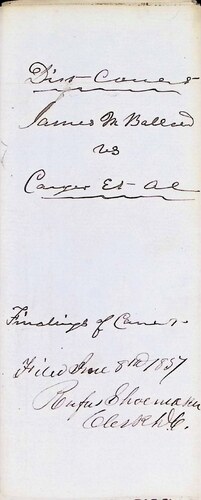 Dist Court
James M Ballard
vs
Conger Et Al
Findings of Court
Filed June 8th 1857
Rufus Shoemaker
Clerk D.C.